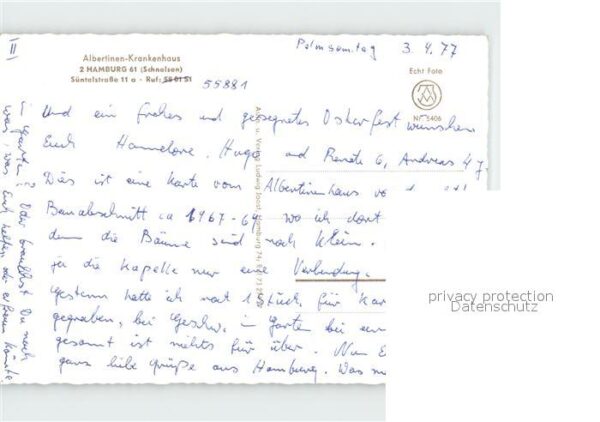 II
Albertinen-Krankenhaus
2 HAMBURG 61 (Schnelsen)
Süntelstraße 11 a - Ruf: 55 81 51
55881
Palmsonntag 3.4.77
Echt Foto
Nr. 5406
Und ein Frohes und gesegnetes Osterfest wünschen
Euch Hannelore, Hugo und Renate 6, Andreas 4 J.
Dies ist eine Karte vom Albertinenhaus
Bauabschnitt ca 1967-69, wo ich dort
denn die Bäume sind noch klein.
ja die Kapelle nur eine Verbindung.
Gestern hatte ich noch 1 Stück für Kar
gegraben, bei Geschw. im Garten bei
gesamt ist nichts für über. Nun E
ganz liebe Grüße aus Hamburg. Was
Garten? Oder brauchst Du noch
was, was Euch helfen oder erfreuen könnte
u. Verlag Ludwig Joost, Hamburg 74,
privacy protection
Datenschutz